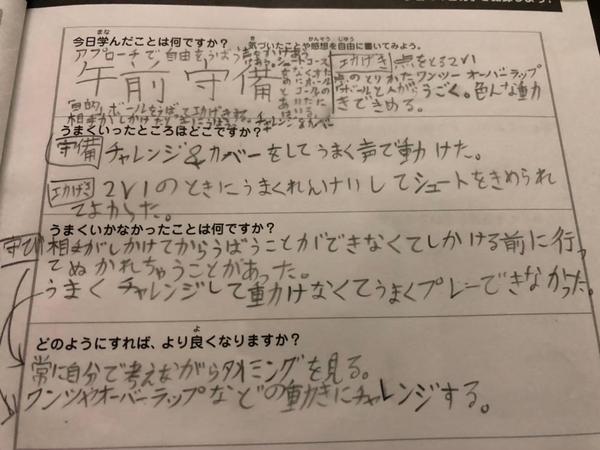 今日学んだことは何ですか？ 気づいたことや感想を自由に書いてみよう。
アプローチで自由をうばう
午前守備
目的 ボールをうばって攻げき
チャレンジ&カバー
攻げき 点をとる2V1
点のとりかた ワンツー オーバーラップ
ボールと人がうごく。色んな動
きできめる。
うまくいったところはどこですか？
守備 チャレンジ&カバーをしてうまく声で動けた。
攻げき 2V1のときにうまくれんけいしてシュートをきめられ
てよかった。
うまくいかなかったことは何ですか？
守び 相手がしかけてからうばうことができなくてしかける前に行っ
てぬかれちゃうことがあった。
うまくチャレンジして動けなくてうまくプレーできなかった。
どのようにすれば、より良くなりますか？
常に自分で考えながらタイミングを見る。
ワンツやオーバーラップなどの動きにチャレンジする。